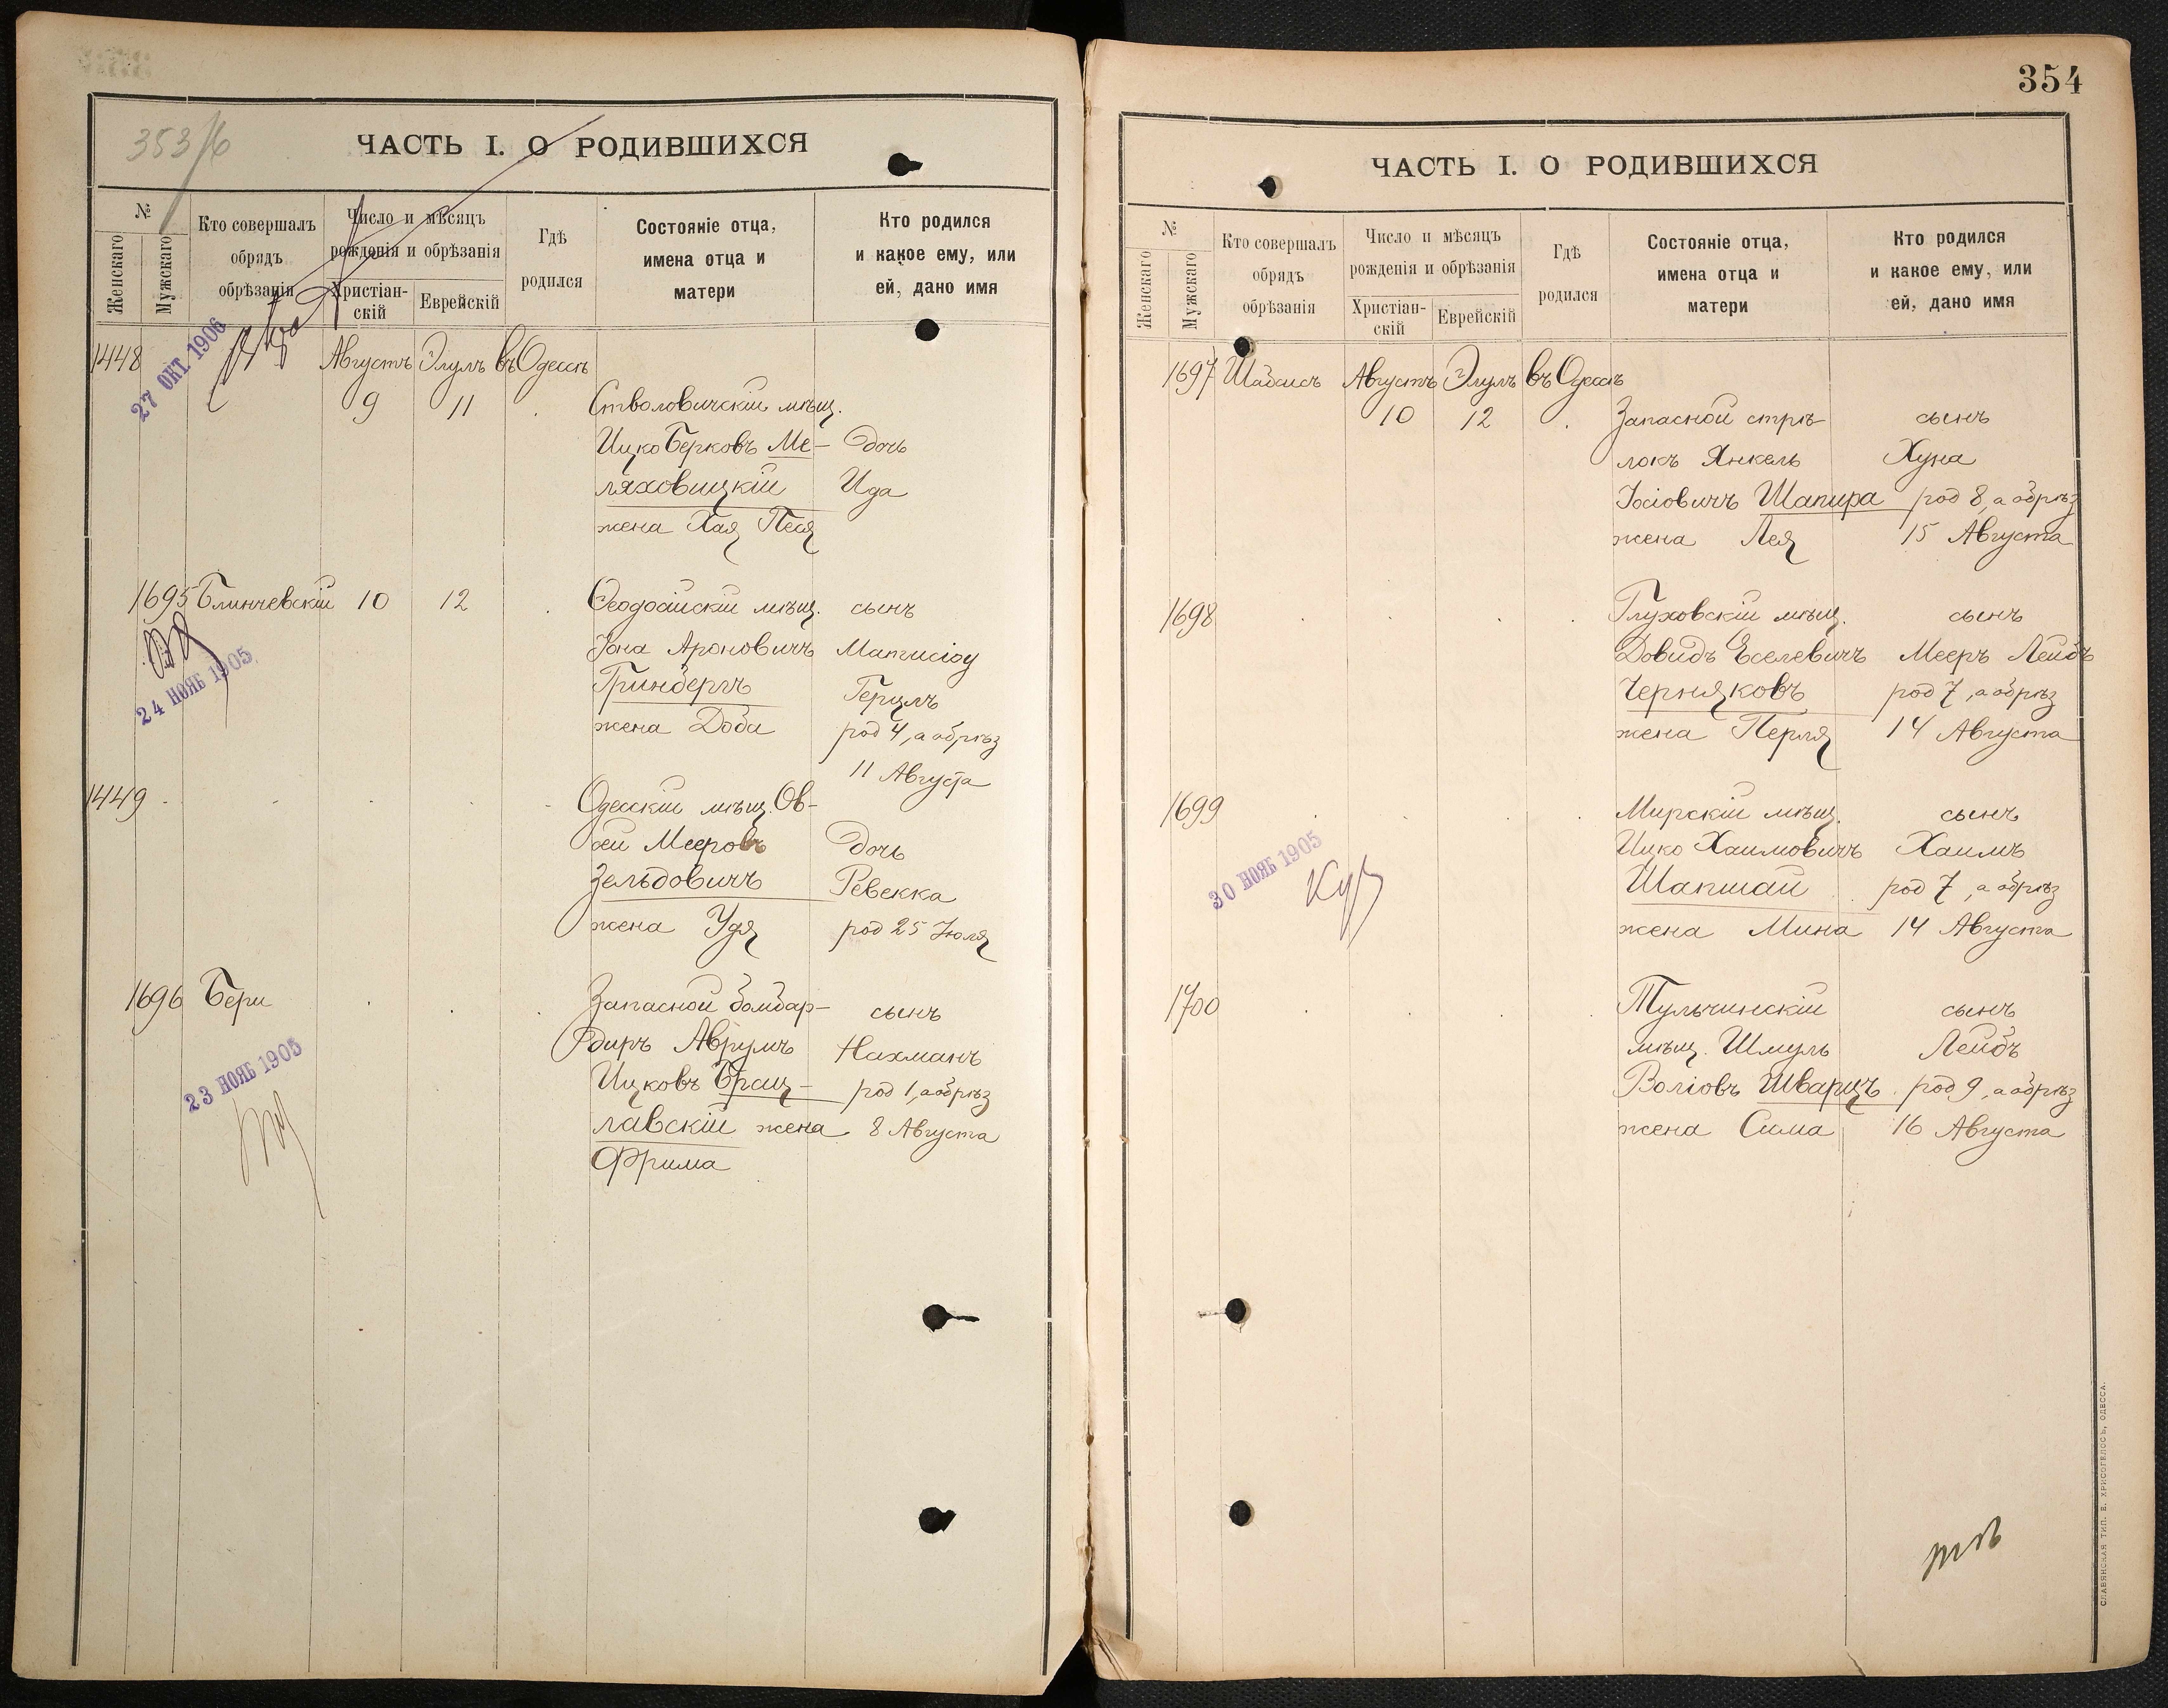 353/б
ЧАСТЬ I. О РОДИВШИХСЯ
№
Женскаго
Мужскаго
Кто совершалъ
обрядъ
обрѣзанія
Число и мѣсяцъ
рожденія и обрѣзанія
Христіан-
скій
Еврейскій
Гдѣ
родился
Состояніе отца,
имена отца и
матери
Кто родился
и какое ему, или
ей, дано имя
1448
27 ОКТ. 1906
Августъ Элулъ въ Одессѣ
9 11
Стволовичскій мѣщ.
Ицко Берковъ Ме- дочь
ляховицкій Ида
жена Хая Песя
1695 Блинчевскій 10 12 Ѳеодосійскій мѣщ. сынъ
Іона Ароновичъ Матисіоу
Гринбергъ Герцлъ
жена Доба род 4, а обрѣз
11 Августа
24 НОЯБ 1905
1449 Одесскій мѣщ. Ов-
сей Мееровъ дочь
Зельдовичъ Ревекка
жена Удя род 25 Іюля
1696 Бери Запасной бомбар- сынъ
диръ Аврумъ Нахманъ
Ицковъ Брац- род 1, а обрѣз
лавскій жена 8 Августа
Фрима
23 НОЯБ 1905
354
ЧАСТЬ I. О РОДИВШИХСЯ
№
Женскаго
Мужскаго
Кто совершалъ
обрядъ
обрѣзанія
Число и мѣсяцъ
рожденія и обрѣзанія
Христіан-
скій
Еврейскій
Гдѣ
родился
Состояніе отца,
имена отца и
матери
Кто родился
и какое ему, или
ей, дано имя
1697 Шабсисъ Августъ Элулъ въ Одессѣ
10 12 Запасной стрѣ- сынъ
локъ Янкель Хуна
Іосіовичъ Шапира род 8, а обрѣз
жена Лея 15 Августа
1698 Глуховскій мѣщ. сынъ
Довидъ Еселевичъ Мееръ Лейбъ
Черняковъ род 7, а обрѣз
жена Перля 14 Августа
1699 Мирскій мѣщ. сынъ
Ицко Хаимовичъ Хаимъ
Шапшай род 7, а обрѣз
жена Мина 14 Августа
30 НОЯБ 1905
1700 Тульчинскій сынъ
мѣщ. Шмуль Лейбъ
Воліовъ Шварцъ род 9, а обрѣз
жена Сима 16 Августа
СЛАВЯНСКАЯ ТИП. Е. ХРИСОГЕЛОСЪ, ОДЕССА.